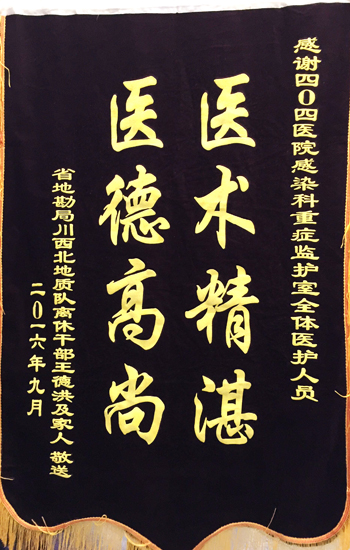 感谢四0四医院感染科重症监护室全体医护人员
医术精湛
医德高尚
省地勘局川西北地质队离休干部王德洪及家人 敬送
二0一六年九月